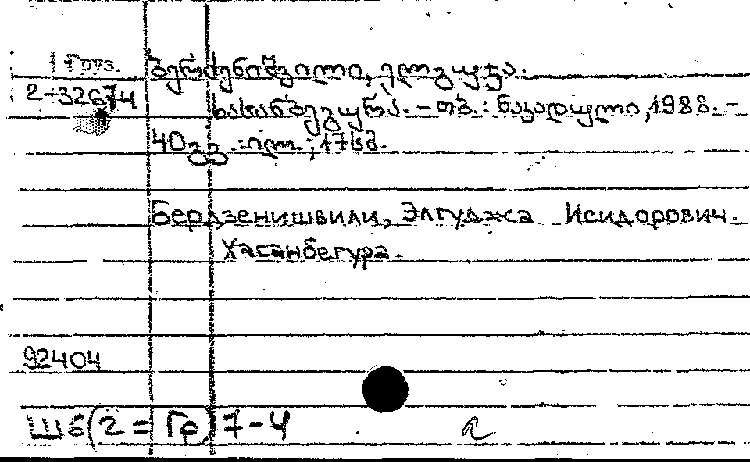 Груз.
ბერძენიშვილი, ელგუჯა.
2-32674
ხასანბეგურა. - თბ.: ნაკადული, 1988. -
40გვ. : ილ.; 17სმ.
Бердзенишвили, Элгуджа Исидорович.
Хасанбегура.
92404
Шб(2=Гр)7-4